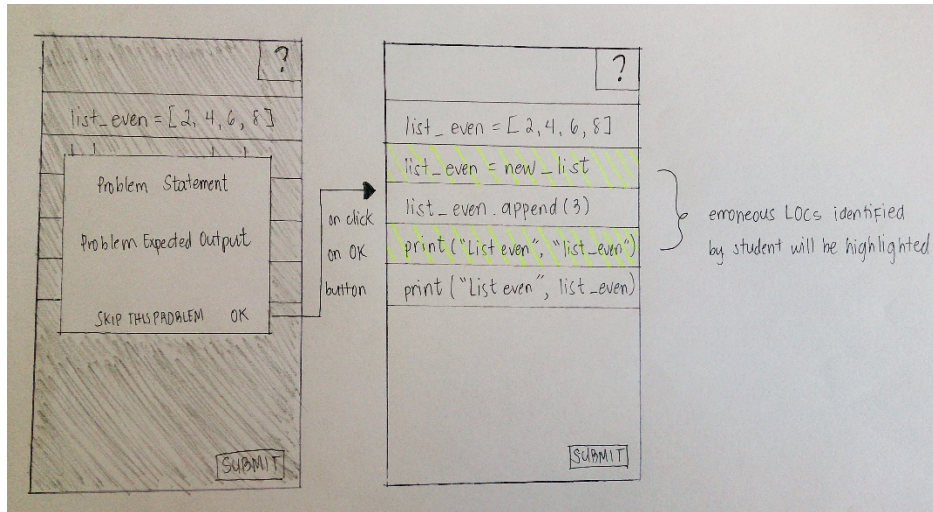 ?
list_even = [2, 4, 6, 8]
Problem Statement
Problem Expected Output
SKIP THIS PROBLEM OK
SUBMIT
on click
on OK
button
?
list_even = [2,4,6,8]
list_even = new_list
list_even.append(3)
print("List even", "list_even")
print("List even", list_even)
SUBMIT
erroneous LOCs identified
by student will be highlighted